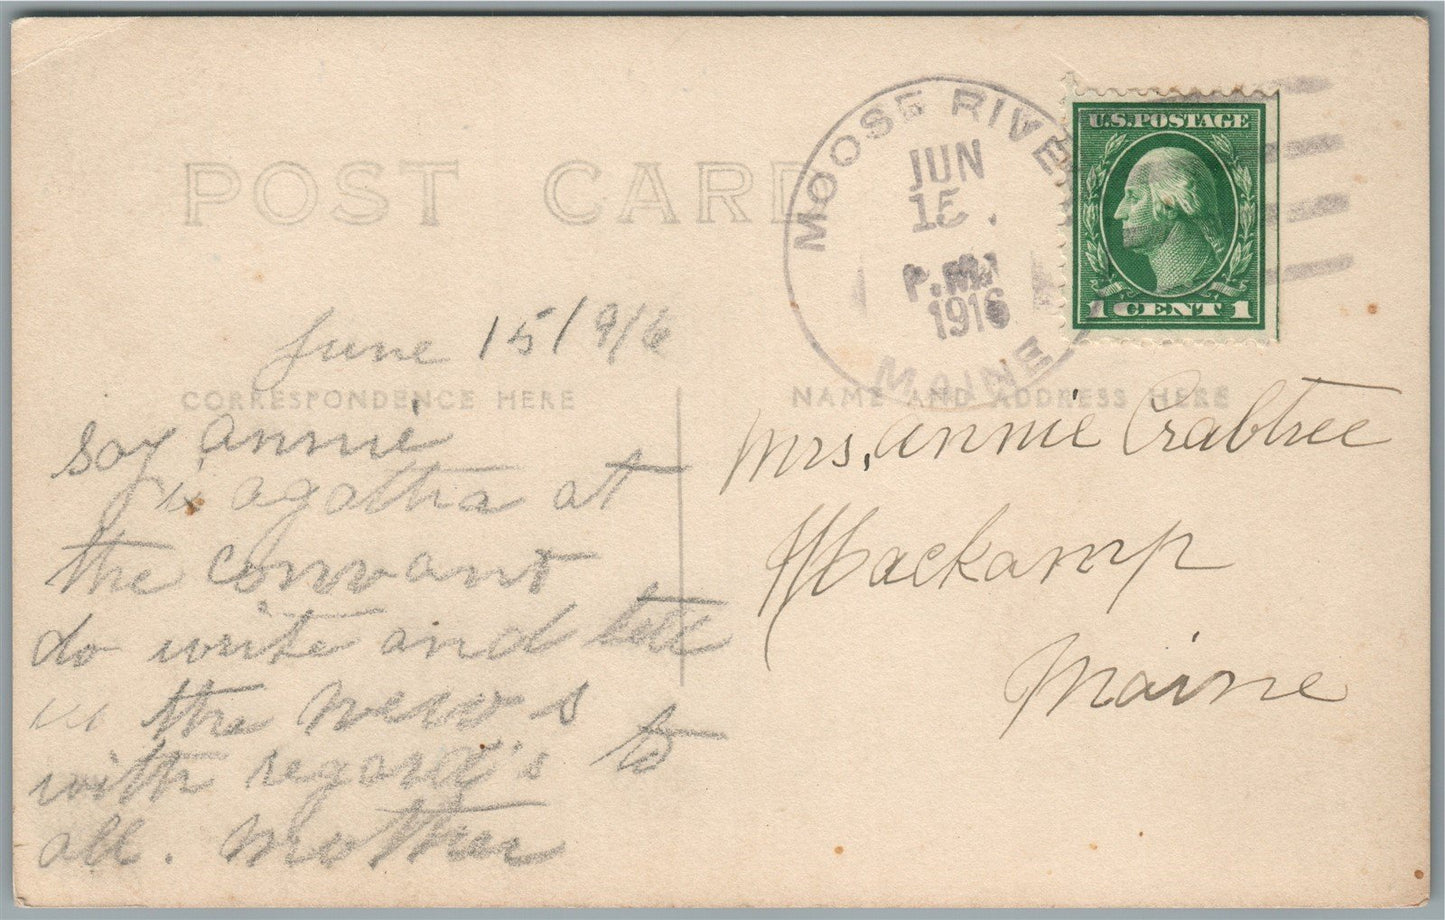 POST CARD
MOOSE RIVE
JUN
15
P.M.
1916
MAINE
U.S. POSTAGE
1 CENT 1
June 15/916
CORRESPONDENCE HERE
Say Annie
is agatha at
the convant
do write and tell
us the newes
with regard's to
all. Mother
NAME AND ADDRESS HERE
Mrs, Annie Crabtree
Hackamp
Maine